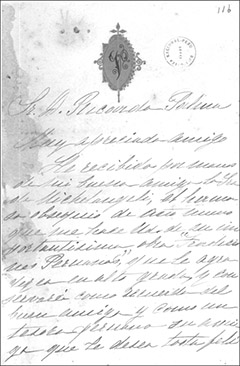 116
Sr. D. Ricardo Palma
Muy apreciado amigo
He recibido por mano
de mi buen amigo
de Michelangeli, el hermo
so obsequio de
que me hace Ud. de "su im
portantisima" obra "Tradicio
nes Peruanas", que le agra
dezco en alto grado, y con
servaré como recuerdo del
buen amigo y como un
tesoro peruano su ami
ga que le desea toda feli